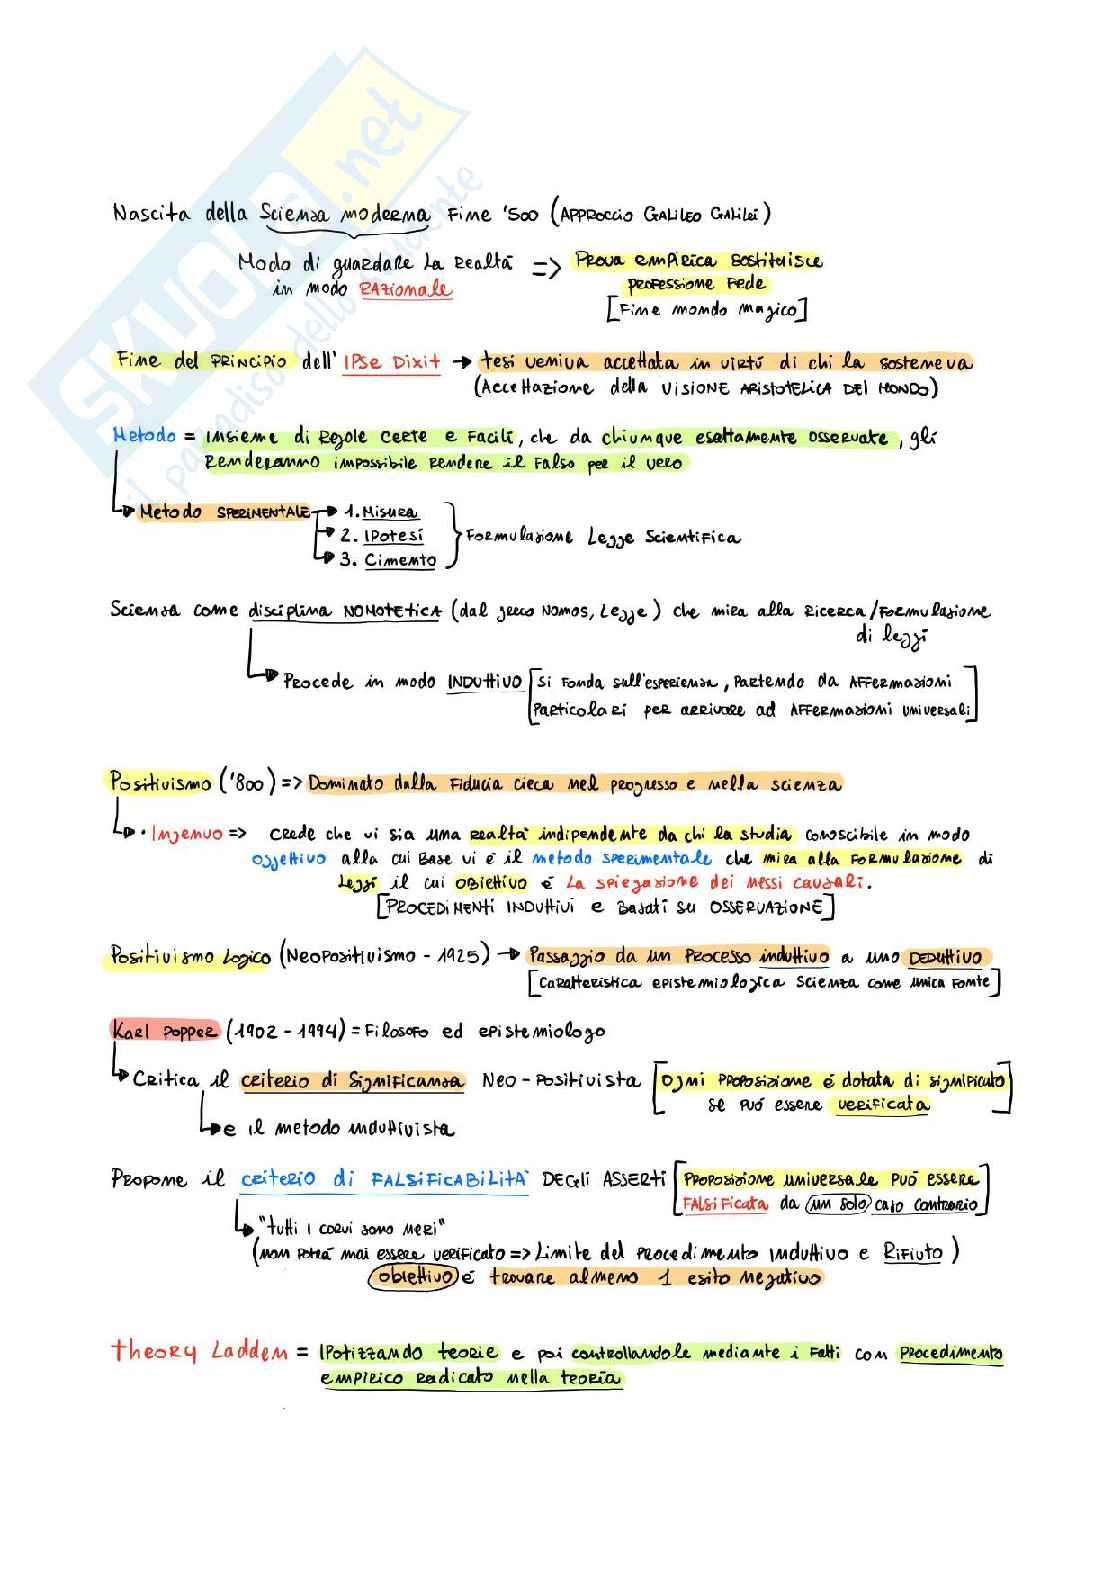 SKUOLA.net
il paradiso dello studente
Nascita della Scienza moderna Fine '500 (APPROCCIO GALILEO GALILEI)
Modo di guardare la realtà => Prova empirica sostituisce
in modo RAZIONALE professione fede
[Fine mondo magico]
Fine del PRINCIPIO dell' IPSE DIXIT → tesi veniva accettata in virtú di chi la sosteneva
(Accettazione della VISIONE ARISTOTELICA DEL MONDO)
Metodo = insieme di regole certe e facili, che da chiunque esattamente osservate, gli
renderanno impossibile rendere il falso per il vero
Metodo SPERIMENTALE → 1. Misura
2. IPotesi
3. Cimento
Formulazione Legge Scientifica
Scienza come disciplina NOMOTETICA (dal greco Nomos, Legge) che mira alla Ricerca/Formulazione
di leggi
Procede in modo INDUTTIVO [si fonda sull'esperienza, partendo da AFFERMAZIONI
particolari per arrivare ad AFFERMAZIONI universali]
Positivismo ('800) => Dominato dalla Fiducia cieca nel progresso e nella scienza
• Ingenuo => crede che vi sia una realtà indipendente da chi la studia conoscibile in modo
oggettivo alla cui base vi é il metodo sperimentale che mira alla formulazione di
leggi il cui obiettivo é la spiegazione dei nessi causali.
[PROCEDIMENTI INDUTTIVI e Basati su OSSERVAZIONE]
Positivismo Logico (Neopositivismo - 1925) → Passaggio da un processo induttivo a uno DEDUTTIVO
[caratteristica epistemiologica scienza come unica fonte]
Karl Popper (1902 - 1994) = Filosofo ed epistemiologo
Critica il criterio di significanza Neo-Positivista [Ogni proposizione é dotata di significato
se può essere verificata]
e il metodo induttivista
Propone il criterio di FALSIFICABILITÀ DEGLI ASSERTI [Proposizione universale può essere
FALSIFICATA da un solo caso contrario]
"tutti i corvi sono neri"
(non potrà mai essere verificato => Limite del procedimento induttivo e Rifiuto)
obiettivo é trovare almeno 1 esito negativo
Theory Ladden = Ipotizzando teorie e poi controllandole mediante i fatti con procedimento
empirico radicato nella teoria